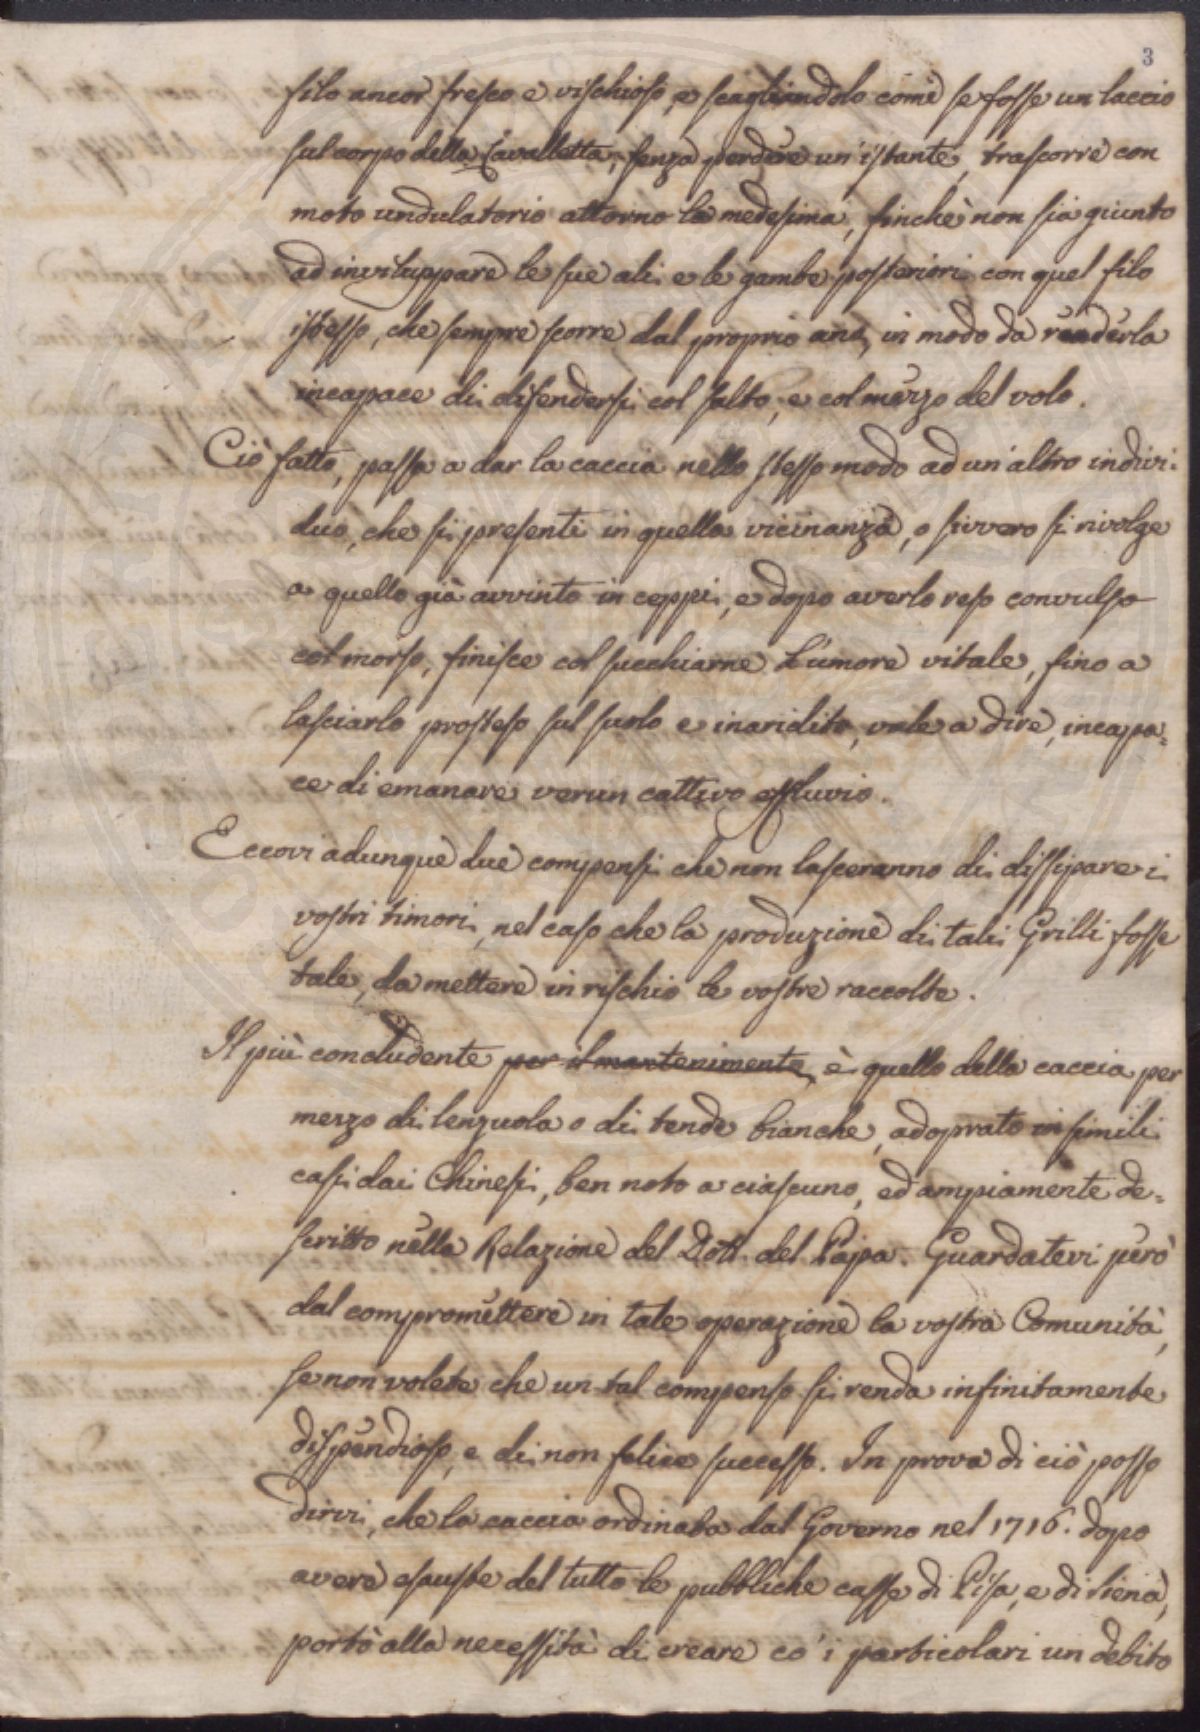 3
filo ancor fresco e vischioso, e scagliandolo come se fosse un laccio
sul corpo della Cavalletta, senza perdere un'istante, trascorre con
moto undulatorio attorno la medesima, finchè non sia giunto
ad inviluppare le sue ali e le gambe posteriori con quel filo
istesso, che sempre scorre dal proprio ano, in modo da renderla
incapace di difendersi col salto, e col mezzo del volo.
Ciò fatto, passa a dar la caccia nello stesso modo ad un'altro indivi-
duo, che si presenti in quella vicinanza, o sivvero si rivolge
a quello già avvinto in ceppi, e dopo averlo reso convulso
col morso, finisce col succhiarne l'umore vitale, fino a
lasciarlo prosteso sul suolo e inaridito, vale a dire, incapa=
ce di emanare verun cattivo effluvio.
Eccovi adunque due compensi che non lasceranno di dissipare i
vostri timori, nel caso che la produzione di tali Grilli fosse
tale, da mettere in rischio le vostre raccolte.
Il più concludente per il mantenimento, è quello della caccia per
mezzo di lenzuola o di tende bianche, adoprato in simili
casi dai Chinesi, ben noto a ciascuno, ed ampiamente de=
scritto nella Relazione del Dott. del Papa. Guardatevi però
dal compromettere in tale operazione la vostra Comunità,
se non volete che un tal compenso si renda infinitamente
dispendioso, e di non felice successo. In prova di ciò posso
dirvi, che la caccia ordinata dal Governo nel 1716. dopo
avere esauste del tutto le pubbliche casse di Pisa, e di Siena,
portò alla necessità di creare co' i particolari un debito